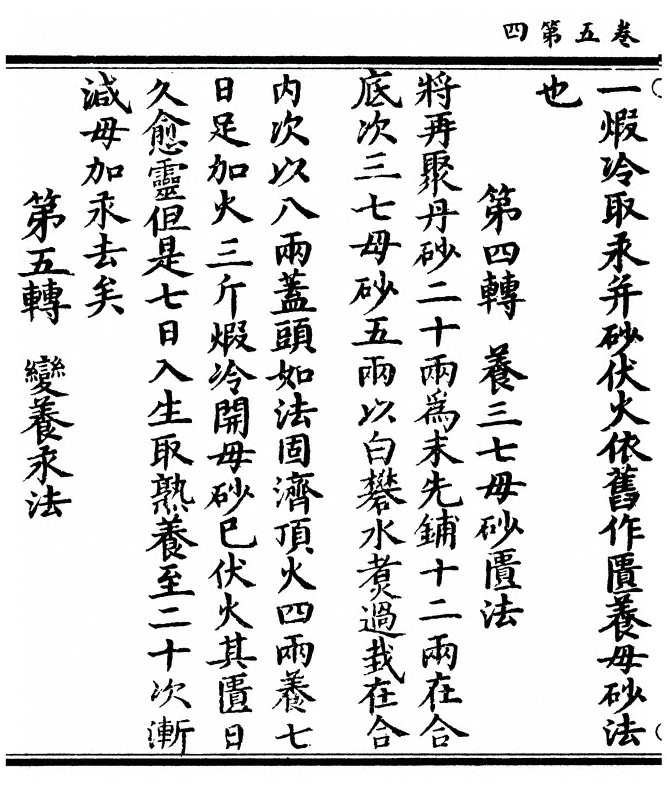 四第五卷
一煆冷取汞并砂伏火依舊作匱養母砂法
也
第四轉　養三七母砂匱法
將再聚丹砂二十兩爲末先鋪十二兩在合
底次三七母砂五兩以白礬水煮過栽在合
内次以八兩蓋頭如法固濟頂火四兩養七
日足加火三斤煆冷開母砂巳伏火其匱日
久愈靈但是七日入生取熟養至二十次漸
減母加汞去矣
第五轉　變養汞法